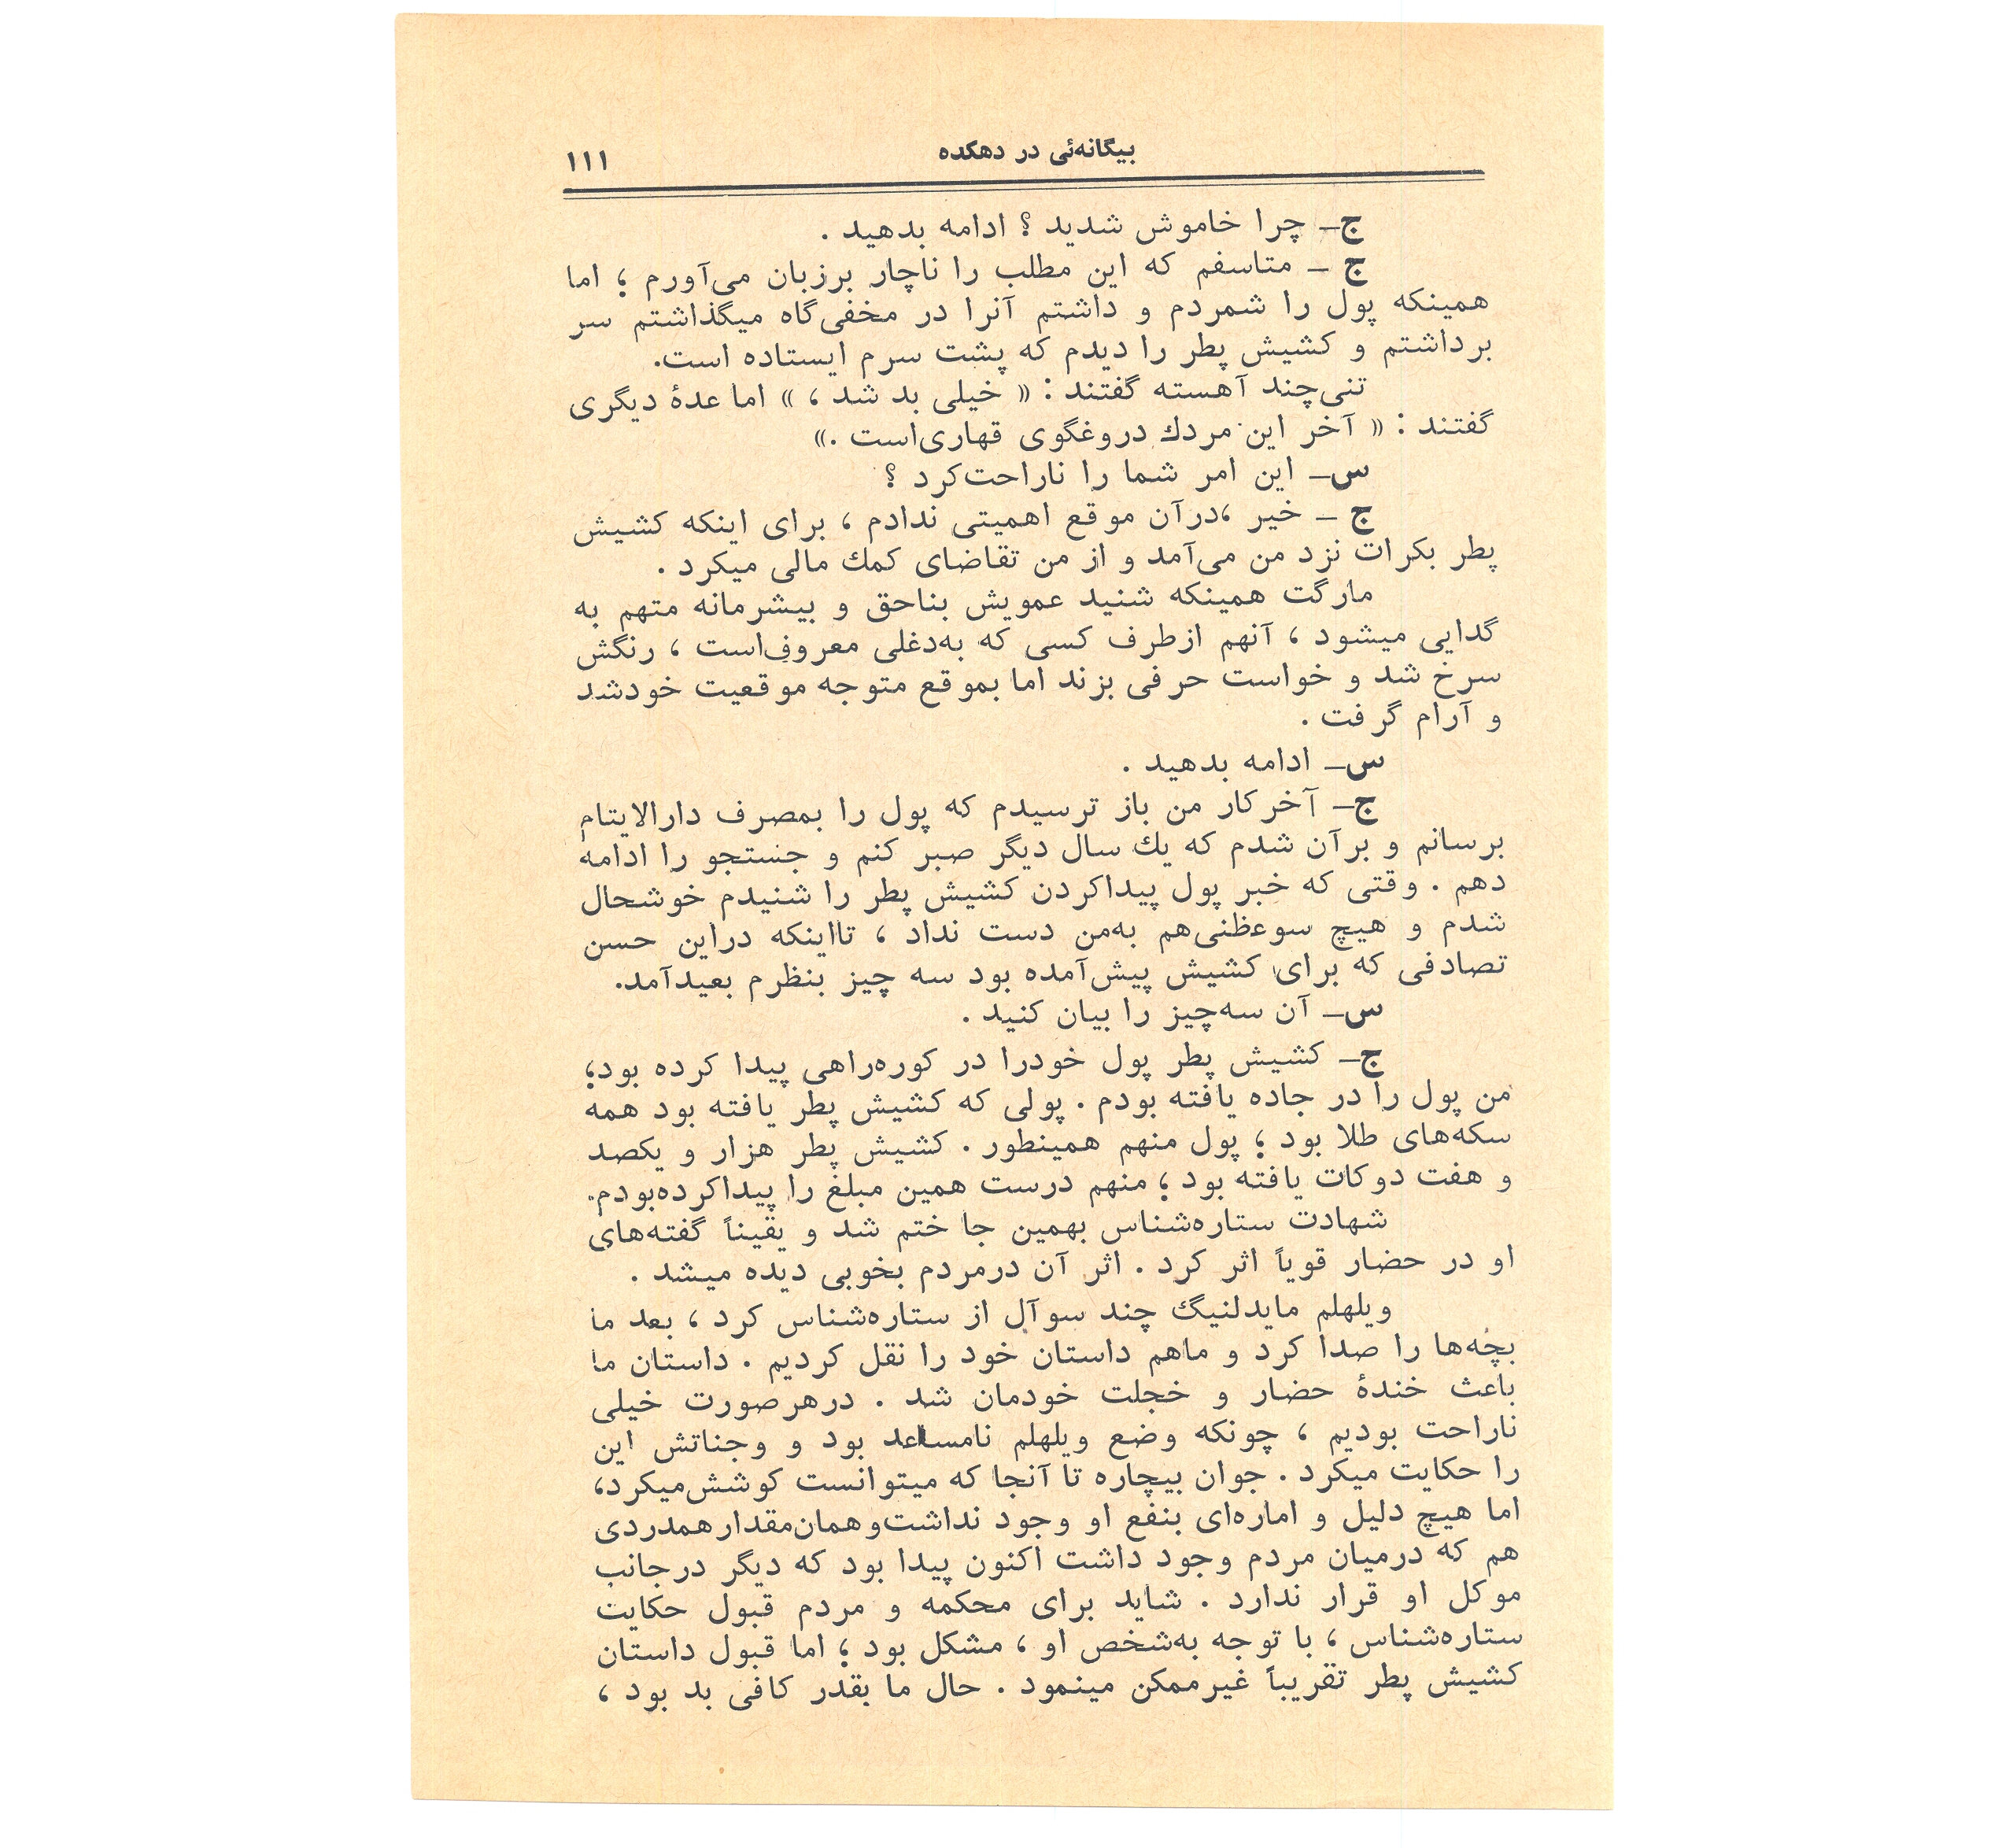 بیگانه‌ئی در دهکده
۱۱۱
ج– چرا خاموش شدید ؟ ادامه بدهید .
ج – متاسفم که این مطلب را ناچار برزبان می‌آورم ؛ اما
همینکه پول را شمردم و داشتم آنرا در مخفی‌گاه میگذاشتم سر
برداشتم و کشیش پطر را دیدم که پشت سرم ایستاده است.
تنی‌چند آهسته گفتند : « خیلی بد شد ، » اما عدهٔ دیگری
گفتند : « آخر این مردك دروغگوی قهاری‌است .»
س– این امر شما را ناراحت‌کرد ؟
ج – خیر ،درآن موقع اهمیتی ندادم ، برای اینکه کشیش
پطر بکرات نزد من می‌آمد و از من تقاضای کمك مالی میکرد .
مارگت همینکه شنید عمویش بناحق و بیشرمانه متهم به
گدایی میشود ، آنهم ازطرف کسی که به‌دغلی معروف‌است ، رنگش
سرخ شد و خواست حرفی بزند اما بموقع متوجه موقعیت خودشد
و آرام گرفت .
س– ادامه بدهید .
ج– آخرکار من باز ترسیدم که پول را بمصرف دارالایتام
برسانم و برآن شدم که یك سال دیگر صبر کنم و جستجو را ادامه
دهم . وقتی که خبر پول پیداکردن کشیش پطر را شنیدم خوشحال
شدم و هیچ سوءظنی‌هم به‌من دست نداد ، تااینکه دراین حسن
تصادفی که برای کشیش پیش‌آمده بود سه چیز بنظرم بعیدآمد.
س– آن سه‌چیز را بیان کنید .
ج– کشیش پطر پول خودرا در کوره‌راهی پیدا کرده بود؛
من پول را در جاده یافته بودم . پولی که کشیش پطر یافته بود همه
سکه‌های طلا بود ؛ پول منهم همینطور . کشیش پطر هزار و یکصد
و هفت دوکات یافته بود ؛ منهم درست همین مبلغ را پیداکرده‌بودم.
شهادت ستاره‌شناس بهمین جا ختم شد و یقیناً گفته‌های
او در حضار قویاً اثر کرد . اثر آن درمردم بخوبی دیده میشد .
ویلهلم مایدلنیگ چند سوآل از ستاره‌شناس کرد ، بعد ما
بچه‌ها را صدا کرد و ماهم داستان خود را نقل کردیم . داستان ما
باعث خندهٔ حضار و خجلت خودمان شد . درهرصورت خیلی
ناراحت بودیم ، چونکه وضع ویلهلم نامساعد بود و وجناتش این
را حکایت میکرد . جوان بیچاره تا آنجا که میتوانست کوشش‌میکرد،
اما هیچ دلیل و اماره‌ای بنفع او وجود نداشت‌وهمان‌مقدارهمدردی
هم که درمیان مردم وجود داشت اکنون پیدا بود که دیگر درجانب
موکل او قرار ندارد . شاید برای محکمه و مردم قبول حکایت
ستاره‌شناس ، با توجه به‌شخص او ، مشکل بود ؛ اما قبول داستان
کشیش پطر تقریباً غیرممکن مینمود . حال ما بقدر کافی بد بود ،